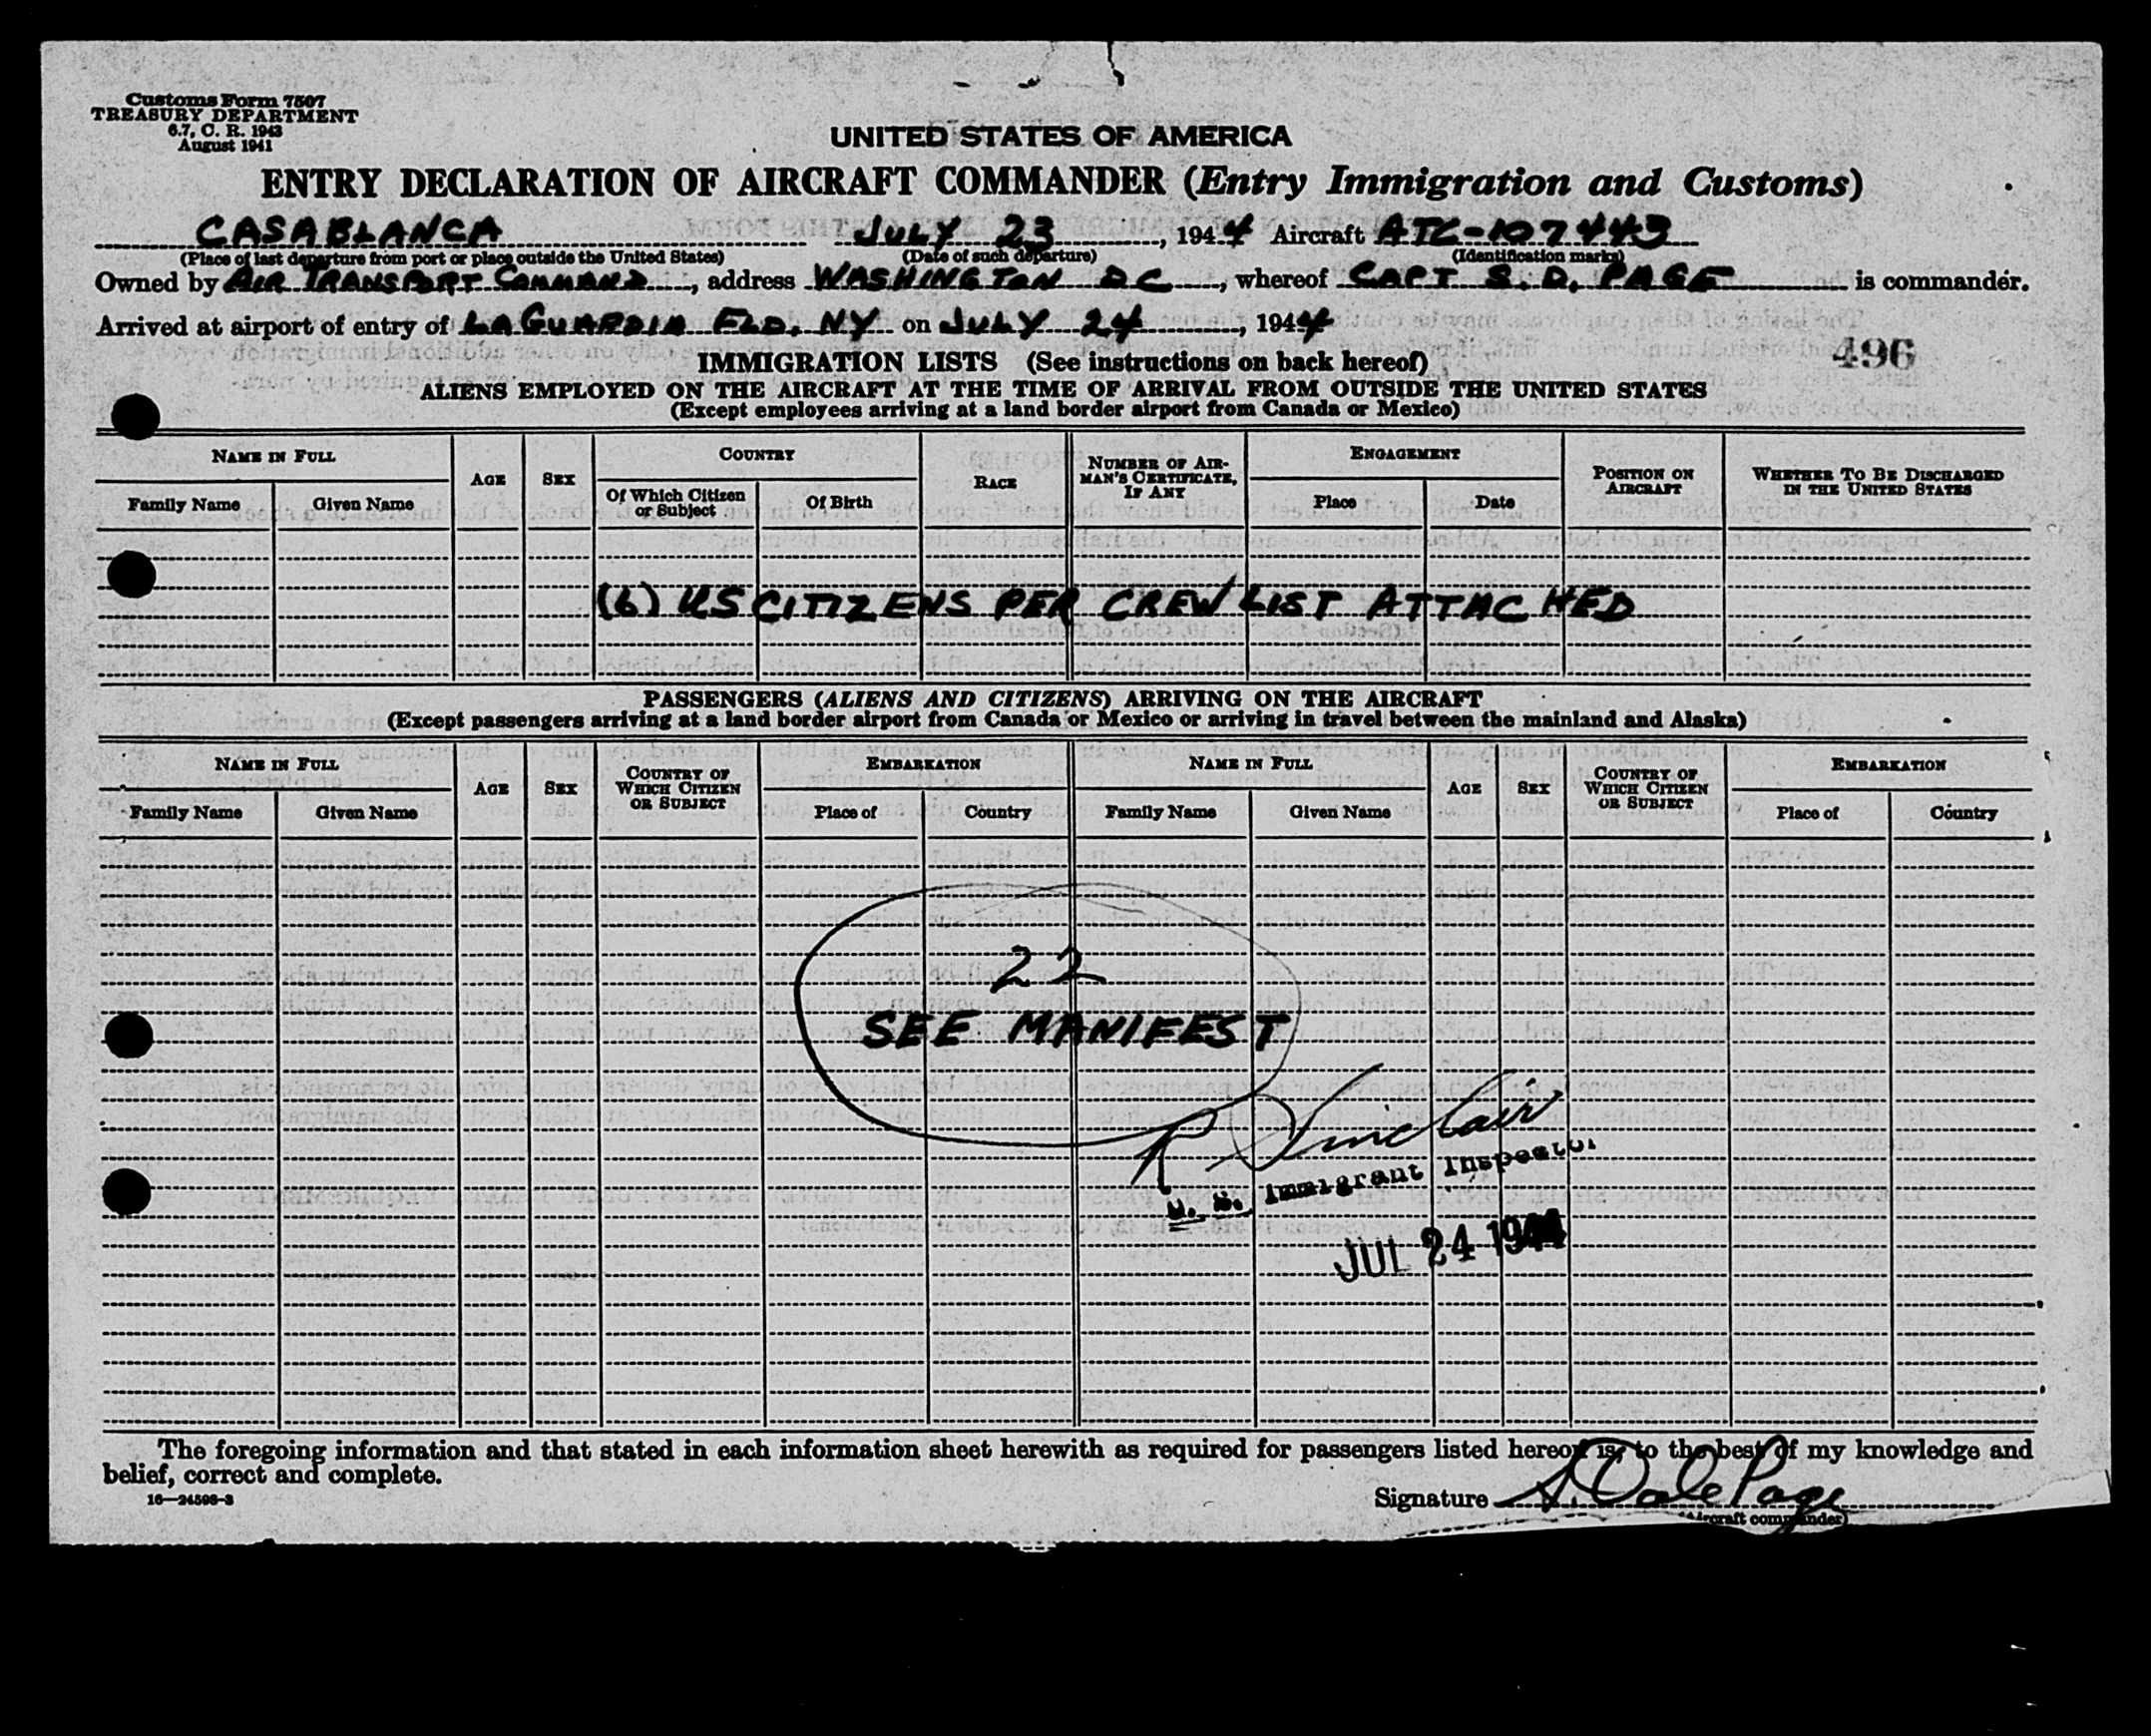 Customs Form 7507
TREASURY DEPARTMENT
6.7, C. R. 1943
August 1941
UNITED STATES OF AMERICA
ENTRY DECLARATION OF AIRCRAFT COMMANDER (Entry Immigration and Customs)
CASABLANCA JULY 23, 1944 Aircraft ATC-107443
(Place of last departure from port or place outside the United States) (Date of such departure) (Identification marks)
Owned by AIR TRANSPORT COMMAND, address WASHINGTON DC, whereof CAPT S. D. PAGE is commander.
Arrived at airport of entry of LA GUARDIA FLD. NY on JULY 24, 1944
496
IMMIGRATION LISTS (See instructions on back hereof)
ALIENS EMPLOYED ON THE AIRCRAFT AT THE TIME OF ARRIVAL FROM OUTSIDE THE UNITED STATES
(Except employees arriving at a land border airport from Canada or Mexico)
NAME IN FULL
Family Name
Given Name
AGE
SEX
COUNTRY
Of Which Citizen
or Subject
Of Birth
RACE
NUMBER OF AIR-
MAN'S CERTIFICATE,
IF ANY
ENGAGEMENT
Place
Date
POSITION ON
AIRCRAFT
WHETHER TO BE DISCHARGED
IN THE UNITED STATES
(6) US CITIZENS PER CREW LIST ATTACHED
PASSENGERS (ALIENS AND CITIZENS) ARRIVING ON THE AIRCRAFT
(Except passengers arriving at a land border airport from Canada or Mexico or arriving in travel between the mainland and Alaska)
NAME IN FULL
Family Name
Given Name
AGE
SEX
COUNTRY OF
WHICH CITIZEN
OR SUBJECT
EMBARKATION
Place of
Country
NAME IN FULL
Family Name
Given Name
AGE
SEX
COUNTRY OF
WHICH CITIZEN
OR SUBJECT
EMBARKATION
Place of
Country
22
SEE MANIFEST
R Sinclair
U. S. Immigrant Inspector
JUL 24 1944
The foregoing information and that stated in each information sheet herewith as required for passengers listed hereof is, to the best of my knowledge and
belief, correct and complete.
16—24598-3
Signature S. Dale Page
(Aircraft commander)